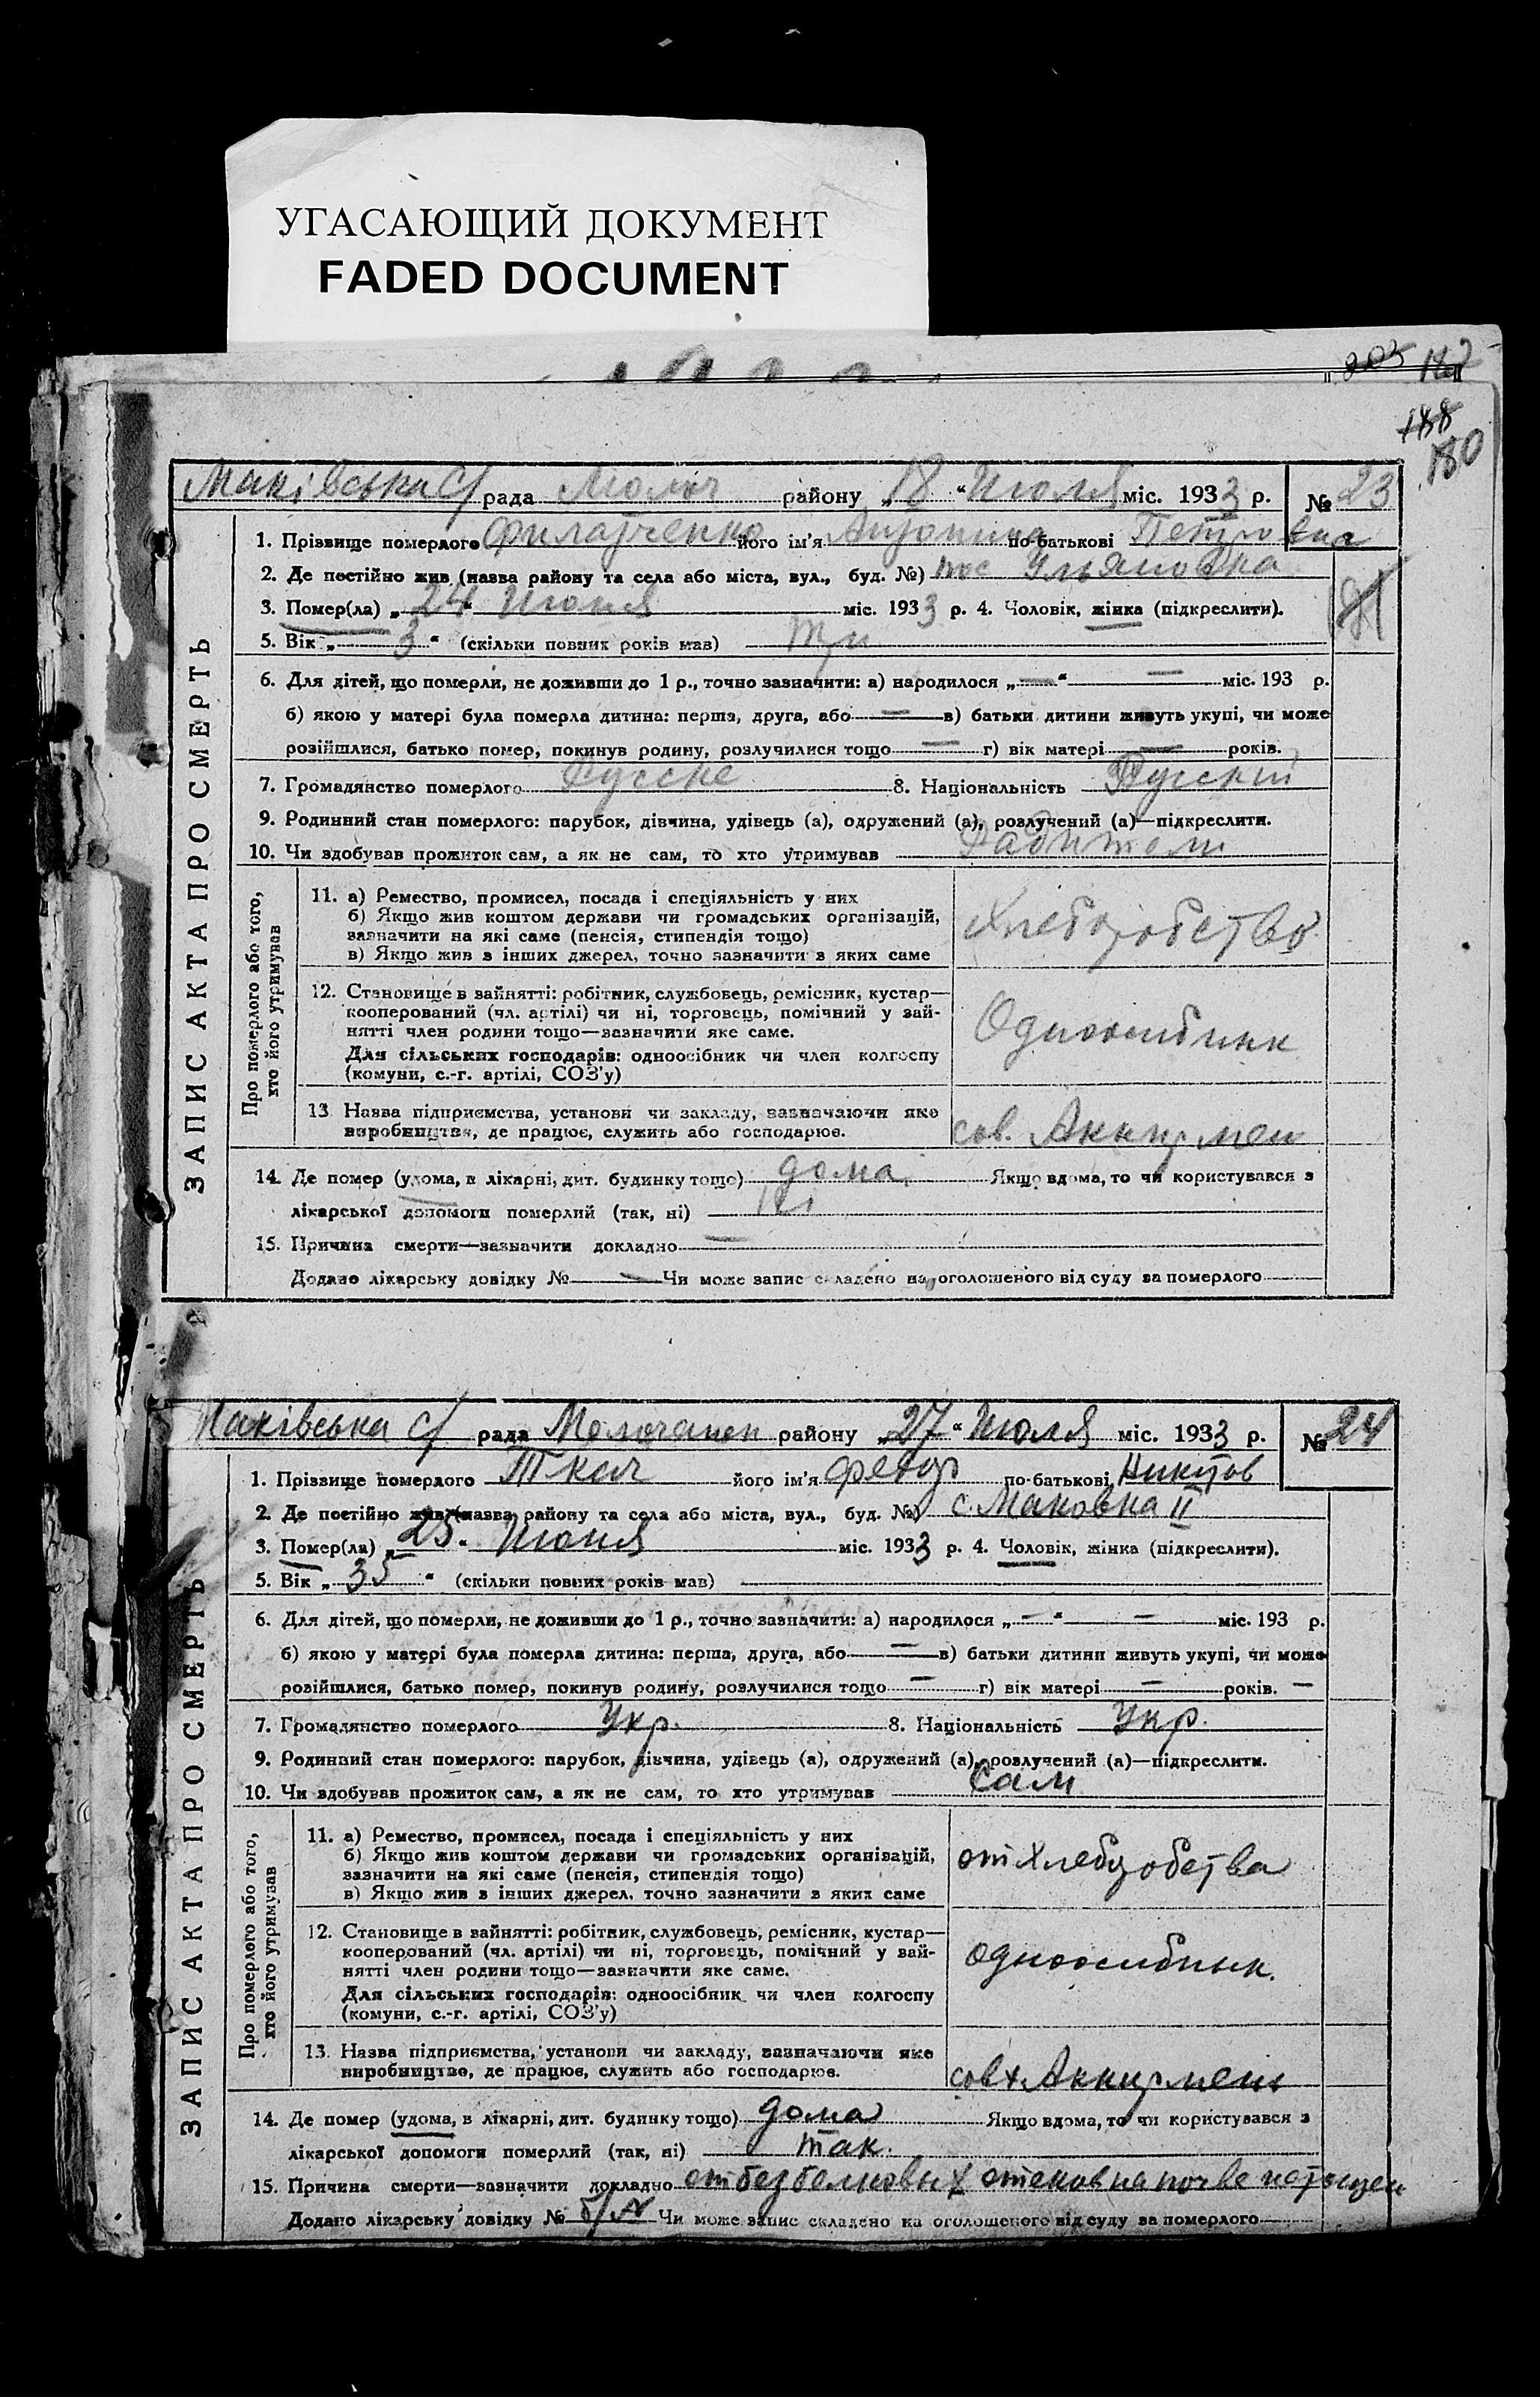 УГАСАЮЩИЙ ДОКУМЕНТ
FADED DOCUMENT
203
188
180
Маківська с/ рада Молоч району „18“ Июля міс. 1933 р. № 23
1. Прізвище померлого Филатченко його ім'я по-батькові Петровна
2. Де постійно жив (назва району та села або міста, вул., буд. №) пос Ульяновка
3. Помер(ла) „24“ Июня міс. 1933 р. 4. Чоловік, жінка (підкреслити).
5. Вік „3“ (скільки повних років мав) Три
6. Для дітей, що померли, не доживши до 1 р., точно зазначити: а) народилося „—“ — міс. 193 р.
б) якою у матері була померла дитина: перша, друга, або — в) батьки дитини живуть укупі, чи може
розійшлися, батько помер, покинув родину, розлучилися тощо — г) вік матері — років.
7. Громадянство померлого Русске 8. Національність Русский
9. Родинний стан померлого: парубок, дівчина, удівець (а), одружений (а), розлучений (а)—підкреслити.
10. Чи здобував прожиток сам, а як не сам, то хто утримував
ЗАПИС АКТА ПРО СМЕРТЬ
Про померлого або того, хто його утримував
11. а) Ремество, промисел, посада і спеціяльність у них
б) Якщо жив коштом держави чи громадських організацій,
зазначити на які саме (пенсія, стипендія тощо)
в) Якщо жив з інших джерел, точно зазначити з яких саме
Хлеборобство
12. Становище в зайнятті: робітник, службовець, ремісник, кустар—
кооперований (чл. артілі) чи ні, торговець, помічний у зай-
нятті член родини тощо—зазначити яке саме.
Для сільських господарів: одноосібник чи член колгоспу
(комуни, с.-г. артілі, СОЗ'у)
Одноосибник
13 Назва підприємства, установи чи закладу, зазначаючи яке
виробництво, де працює, служить або господарює.
сов. Аккирмен
14. Де помер (удома, в лікарні, дит. будинку тощо) дома Якщо вдома, то чи користувався з
лікарської допомоги померлий (так, ні) Ні
15. Причина смерти—зазначити докладно —
Додано лікарську довідку № — Чи може запис складено на оголошеного від суду за померлого
Маківська с/ рада Молочанск району „27“ Июля міс. 1933 р. № 24
1. Прізвище померлого Ткач його ім'я Федор по-батькові Никитов
2. Де постійно жив (назва району та села або міста, вул., буд. №) с. Маковка II
3. Помер(ла) „25“ Июня міс. 1933 р. 4. Чоловік, жінка (підкреслити).
5. Вік „35“ (скільки повних років мав)
6. Для дітей, що померли, не доживши до 1 р., точно зазначити: а) народилося „—“ — міс. 193 р.
б) якою у матері була померла дитина: перша, друга, або — в) батьки дитини живуть укупі, чи може
розійшлися, батько помер, покинув родину, розлучилися тощо — г) вік матері — років. —
7. Громадянство померлого Укр. 8. Національність Укр.
9. Родинний стан померлого: парубок, дівчина, удівець (а), одружений (а), розлучений (а)—підкреслити.
10. Чи здобував прожиток сам, а як не сам, то хто утримував Сам
ЗАПИС АКТА ПРО СМЕРТЬ
Про померлого або того, хто його утримував
11. а) Ремество, промисел, посада і спеціяльність у них
б) Якщо жив коштом держави чи громадських організацій,
зазначити на які саме (пенсія, стипендія тощо)
в) Якщо жив з інших джерел, точно зазначити з яких саме
от хлеборобства
12. Становище в зайнятті: робітник, службовець, ремісник, кустар—
кооперований (чл. артілі) чи ні, торговець, помічний у зай-
нятті член родини тощо—зазначити яке саме.
Для сільських господарів: одноосібник чи член колгоспу
(комуни, с.-г. артілі, СОЗ'у)
одноосибнык.
13. Назва підприємства, установи чи закладу, зазначаючи яке
виробництво, де працює, служить або господарює.
совх Аккирмень
14. Де помер (удома, в лікарні, дит. будинку тощо) дома Якщо вдома, то чи користувався з
лікарської допомоги померлий (так, ні) так.
15. Причина смерти—зазначити докладно от безбелковых отеков на почве
Додано лікарську довідку № б/№ Чи може запис складено на оголошеного від суду за померлого